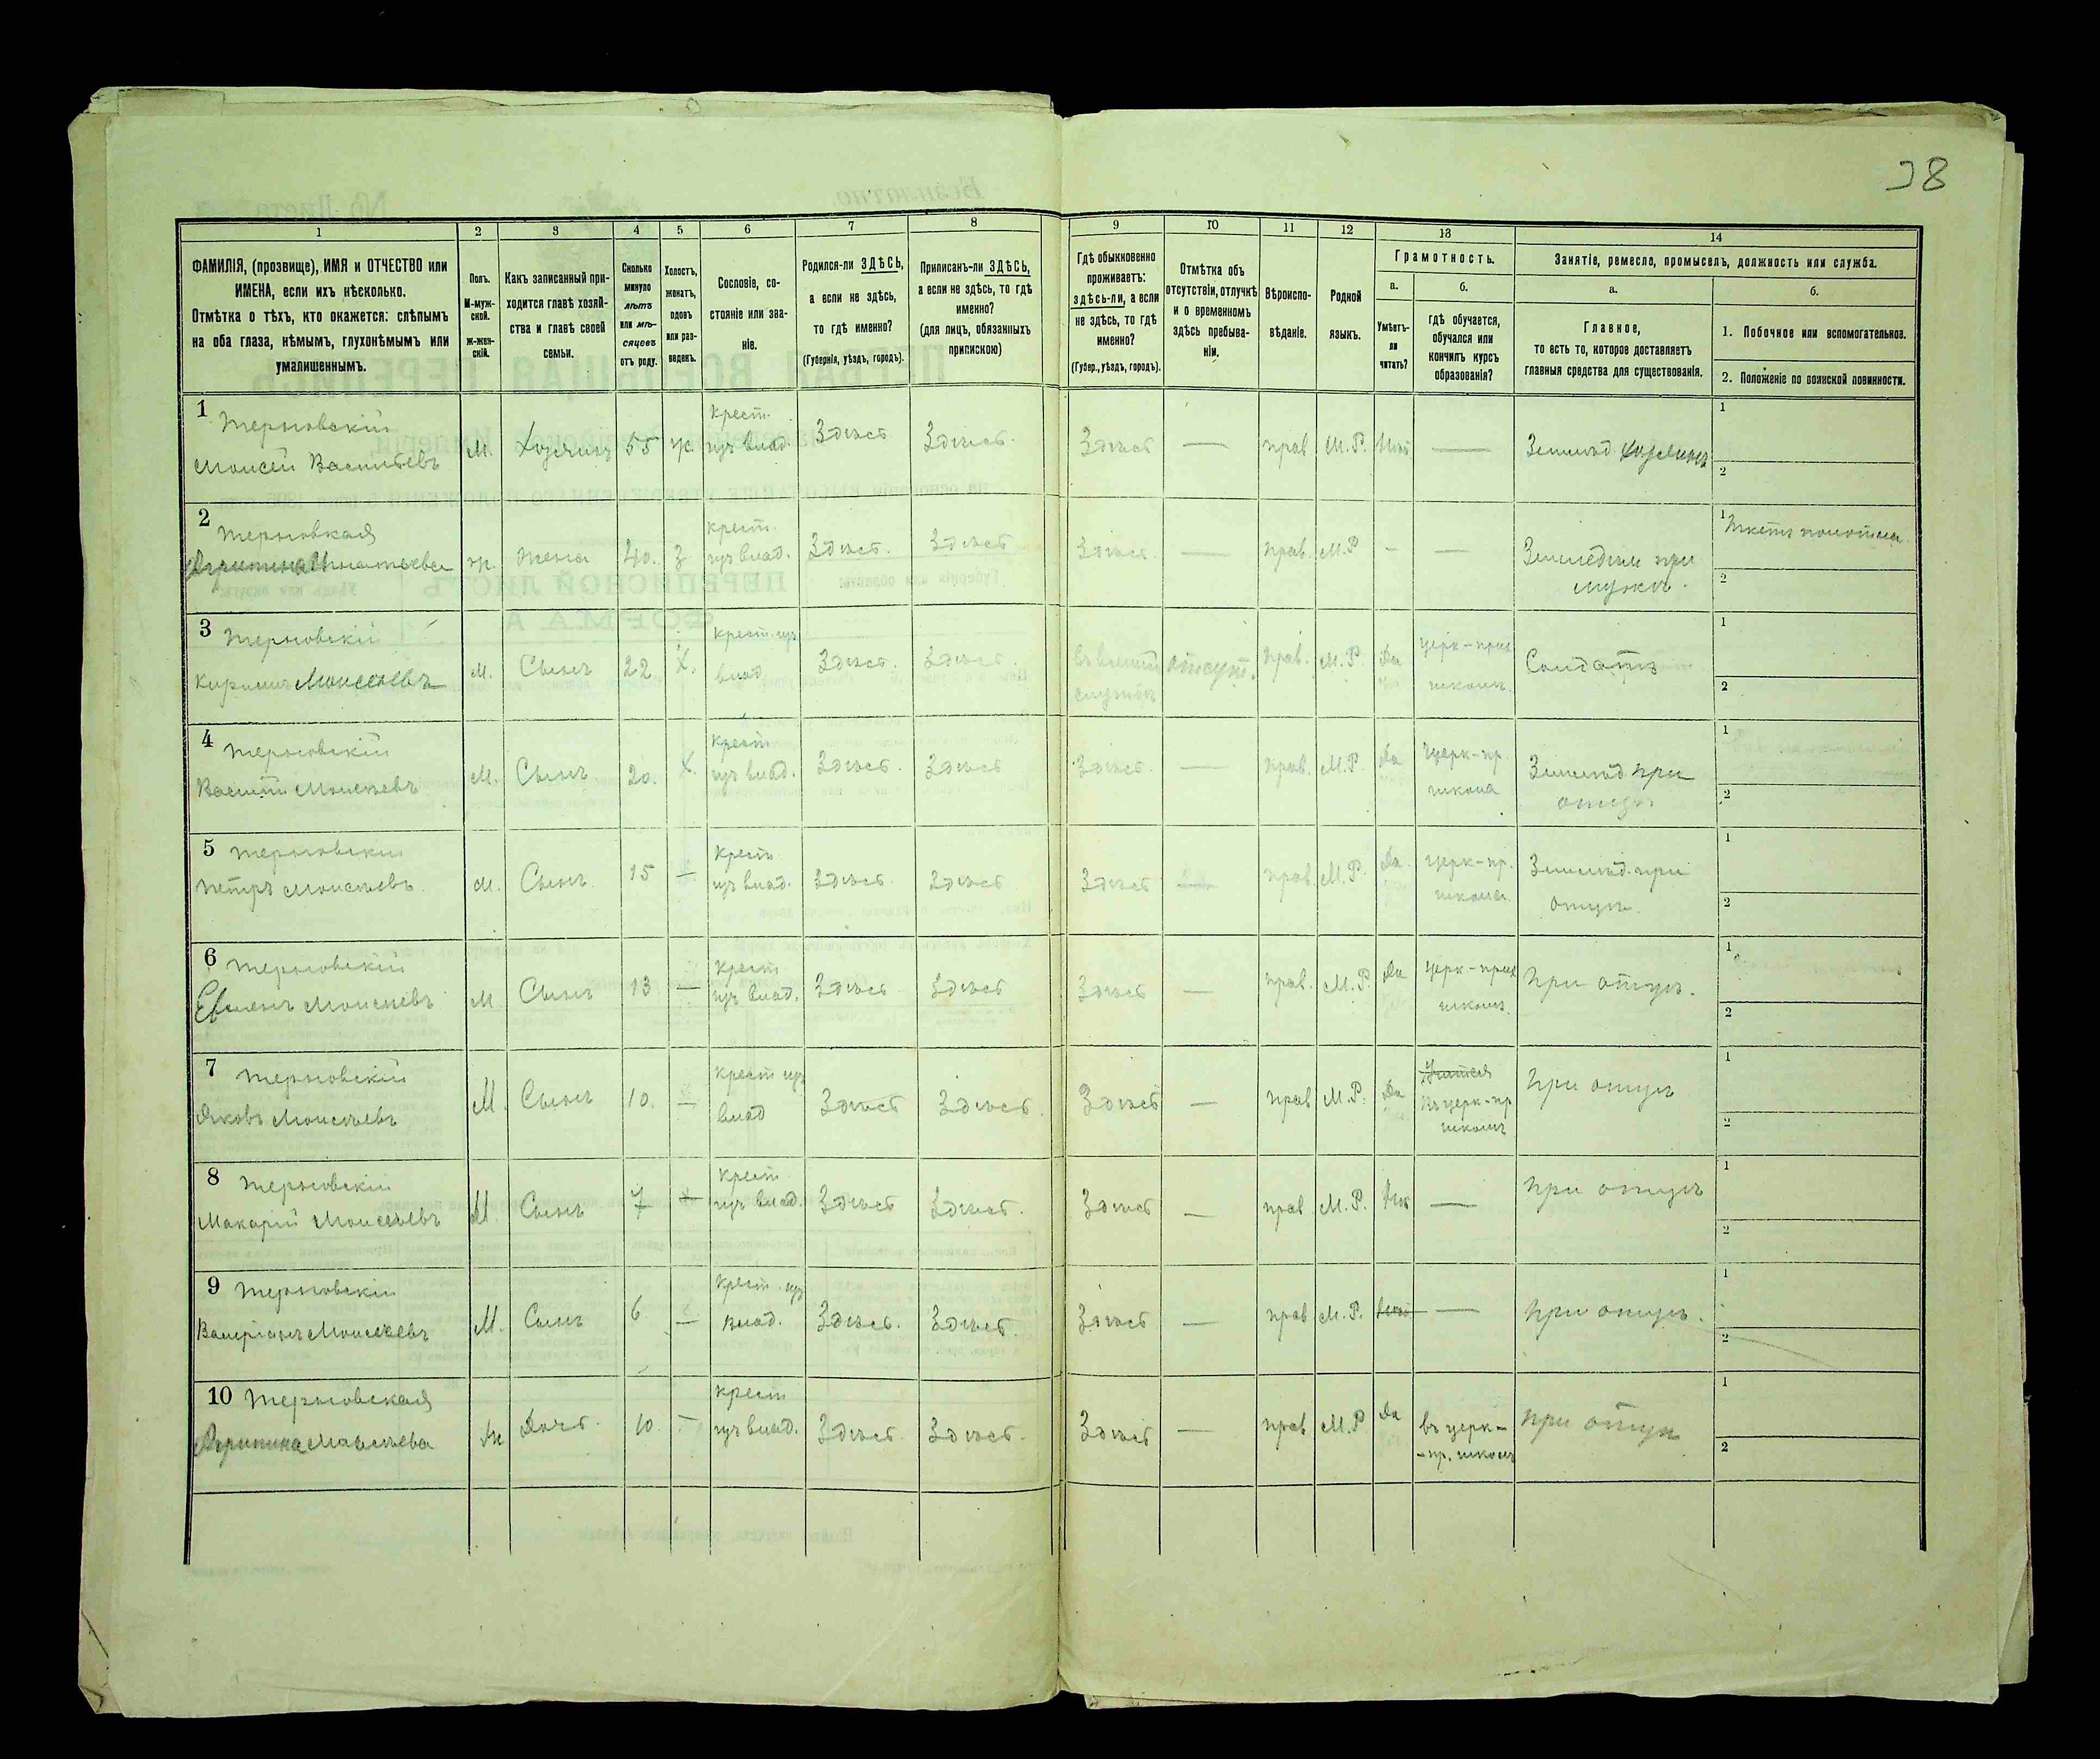 38
1 2 3 4 5 6 7 8 9 10 11 12 13 14
ФАМИЛІЯ, (прозвище), ИМЯ и ОТЧЕСТВО или
ИМЕНА, если ихъ нѣсколько.
Отмѣтка о тѣхъ, кто окажется: слѣпымъ
на оба глаза, нѣмымъ, глухонѣмымъ или
умалишеннымъ.
Полъ.
М-муж-
ской.
Ж-жен-
скій.
Какъ записанный при-
ходится главѣ хозяй-
ства и главѣ своей
семьи.
Сколько
минуло
лѣтъ
или мѣ-
сяцевъ
отъ роду.
Холостъ,
женатъ,
вдовъ
или раз-
веденъ.
Сословіе, со-
стояніе или зва-
ніе.
Родился-ли ЗДѢСЬ,
а если не здѣсь,
то гдѣ именно?
(Губернія, уѣздъ, городъ).
Приписанъ-ли ЗДѢСЬ,
а если не здѣсь, то гдѣ
именно?
(для лицъ, обязанныхъ
припискою)
Гдѣ обыкновенно
проживаетъ:
здѣсь-ли, а если
не здѣсь, то гдѣ
именно?
(Губер., уѣздъ, городъ).
Отмѣтка объ
отсутствіи, отлучкѣ
и о временномъ
здѣсь пребыва-
ніи.
Вѣроиспо-
вѣданіе.
Родной
языкъ.
Грамотность.
а.
Умѣетъ-
ли
читать?
б.
гдѣ обучается,
обучался или
кончилъ курсъ
образованія?
Занятіе, ремесло, промыселъ, должность или служба.
а.
Главное,
то есть то, которое доставляетъ
главныя средства для существованія.
б.
1. Побочное или вспомогательное.
2. Положеніе по воинской повинности.
1 Терновскій
Моисей Васильевъ М. Хозяинъ 55 ж. крест. изъ влад. Здѣсь Здѣсь. Здѣсь — прав М.Р. Нѣт — Землед. хозяинъ
1
2
2 Терновкая
Игнатьева ж. жена 40. з крест. изъ влад. Здѣсь. Здѣсь Здѣсь. — прав. М.Р — — Земледѣл при
мужѣ.
1 Ткетъ полотна
2
3 Терновскій
Кирилъ Моисеевъ М. Сынъ 22 Х. крест. изъ влад Здѣсь. Здѣсь. въ службѣ отсут. прав. М.Р. Да церк-прих школѣ Солдатъ
1
2
4 Терновскій
Василій Моисѣевъ М. Сынъ 20. Х. крест изъ влад. Здѣсь. Здѣсь Здѣсь. — прав. М.Р. Да церк-пр. школа Землед при
отцѣ
1
2
5 Терновскій
Петръ Моисѣевъ М. Сынъ. 15 — крест изъ влад. Здѣсь. Здѣсь Здѣсь прав. М.Р. Да церк-пр. школа Землед. при
отцѣ.
1
2
6 Терновскій
Моисѣевъ М Сынъ 13 — крест изъ влад. Здѣсь Здѣсь Здѣсь — прав. М.Р. Да церк-прих школѣ при отцѣ.
1
2
7 Терновскій
Яковъ Моисѣевъ М. Сынъ 10. — крест изъ влад Здѣсь Здѣсь. Здѣсь — прав М.Р. Да Въ церк-пр школѣ при отцѣ
1
2
8 Терновскій
Макарій Моисѣевъ М. Сынъ 7 крест изъ влад. Здѣсь Здѣсь. Здѣсь — прав М.Р. Нѣт — при отцѣ
1
2
9 Терновскій
Валеріанъ Моисѣевъ М. Сынъ 6 — крест. изъ влад. Здѣсь. Здѣсь. Здѣсь — прав М.Р. — при отцѣ.
1
2
10 Терновская
Агрипина Моисѣева Ж Дочь. 10. — крест изъ влад. Здѣсь. Здѣсь. Здѣсь — прав М.Р Да въ церк-
-пр. школѣ при отцѣ
1
2